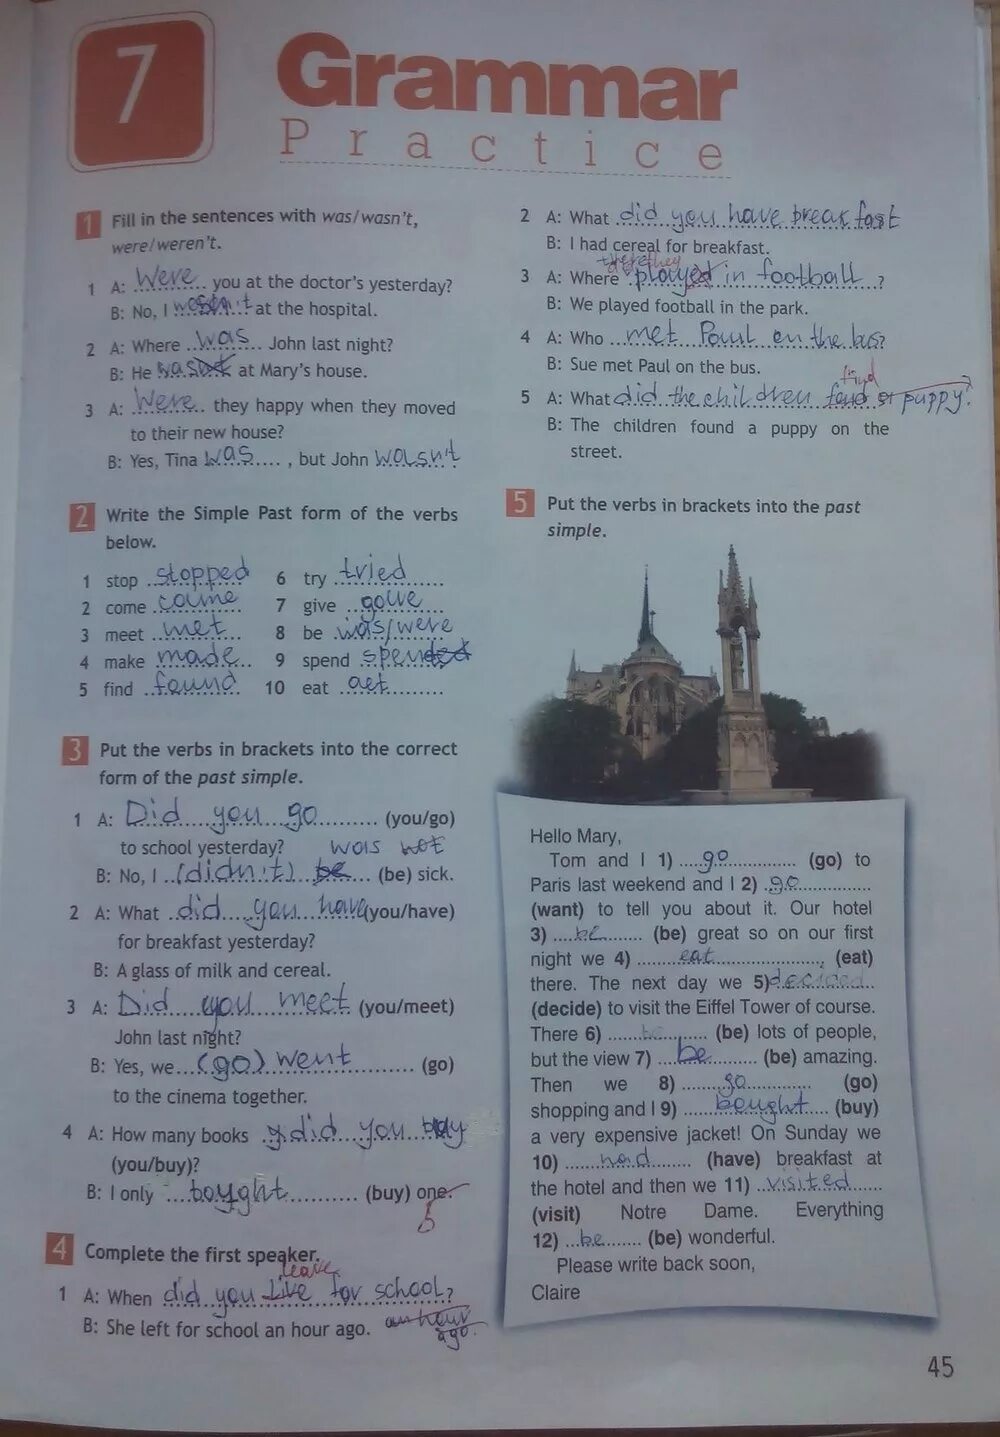 7
Grammar
Practice
1 Fill in the sentences with was/wasn't,
were/weren't.
1 A: Were you at the doctor's yesterday?
B: No, I wasn't at the hospital.
2 A: Where was John last night?
B: He was at Mary's house.
3 A: Were they happy when they moved
to their new house?
B: Yes, Tina was, but John wasn't
2 Write the Simple Past form of the verbs
below.
1 stop stopped 6 try tried
2 come came 7 give gave
3 meet met 8 be was/were
4 make made 9 spend spended
5 find found 10 eat aet
3 Put the verbs in brackets into the correct
form of the past simple.
1 A: Did you go (you/go)
to school yesterday? was not
B: No, I (didn't) be (be) sick.
2 A: What did you have (you/have)
for breakfast yesterday?
B: A glass of milk and cereal.
3 A: Did you meet (you/meet)
John last night?
B: Yes, we (go) went (go)
to the cinema together.
4 A: How many books did you buy
(you/buy)?
B: I only boyght (buy) one.
4 Complete the first speaker.
leave
1 A: When did you live for school?
B: She left for school an hour ago. an hour
ago.
2 A: What did you have breakfast
B: I had cereal for breakfast.
they
3 A: Where played in football?
B: We played football in the park.
4 A: Who met Paul on the bus?
B: Sue met Paul on the bus.
find
5 A: What did the children puppy?
B: The children found a puppy on the
street.
5 Put the verbs in brackets into the past
simple.
Hello Mary,
Tom and I 1) go (go) to
Paris last weekend and I 2) go
(want) to tell you about it. Our hotel
3) be (be) great so on our first
night we 4) eat, (eat)
there. The next day we 5) decided
(decide) to visit the Eiffel Tower of course.
There 6) be (be) lots of people,
but the view 7) be (be) amazing.
Then we 8) go (go)
shopping and I 9) bought (buy)
a very expensive jacket! On Sunday we
10) had (have) breakfast at
the hotel and then we 11) visited
(visit) Notre Dame. Everything
12) be (be) wonderful.
Please write back soon,
Claire
45